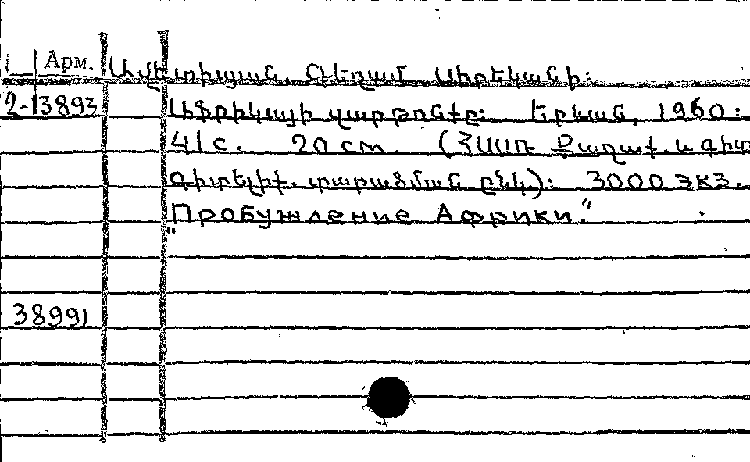 Арм. Ավետիսյան, Գեղամ Սիրեկանի:
2-13893 Աֆրիկայի զարթոնքը: Երևան, 1960:
41 с. 20 cm. (ՀՍՍՌ Քաղաք. և գիտ.
գիտելիք. տարածման ընկ.): 3000 экз.
"Пробуждение Африки."
38991